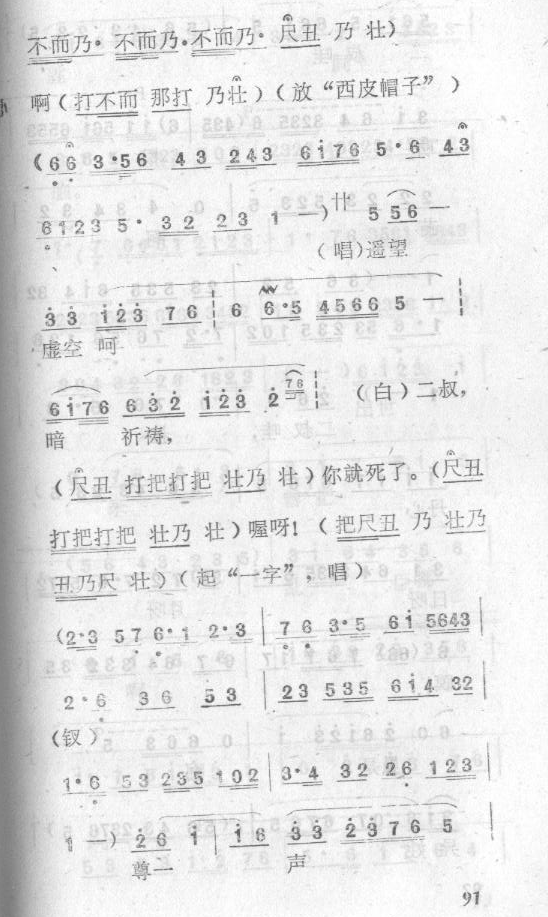 不而乃· 不而乃·不而乃· 尺丑 乃 壮)
啊(打不而 那打 乃壮)(放“西皮帽子”)
(66 3·56 43 243 6i76 5·6 43
6123 5· 32 23 1 —) 卄 5 56 —
(唱)遥望
3 3 123 76 6 6·5 4566 5 —
虚空 呵
6i76 632 123 2 76 (白)二叔,
暗 祈涛,
(尺丑 打把打把 壮乃 壮)你就死了。(尺丑
打把打把 壮乃 壮)喔呀!(把尺丑 乃 壮乃
丑乃尺 壮)(起“一字”,唱)
(2·3 576·1 2·3 | 76 3·5 6i 5643 |
2·6 36 53 | 23 535 6i4 32 |
(钗)
1·6 53 235 102 | 3·4 32 26 123 |
1 —) 26 1 | i6 33 23765 |
尊一 声
91